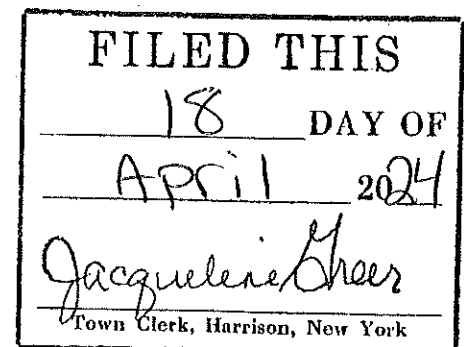 FILED THIS
18 DAY OF
April 2024
Jacqueline Greer
Town Clerk, Harrison, New York